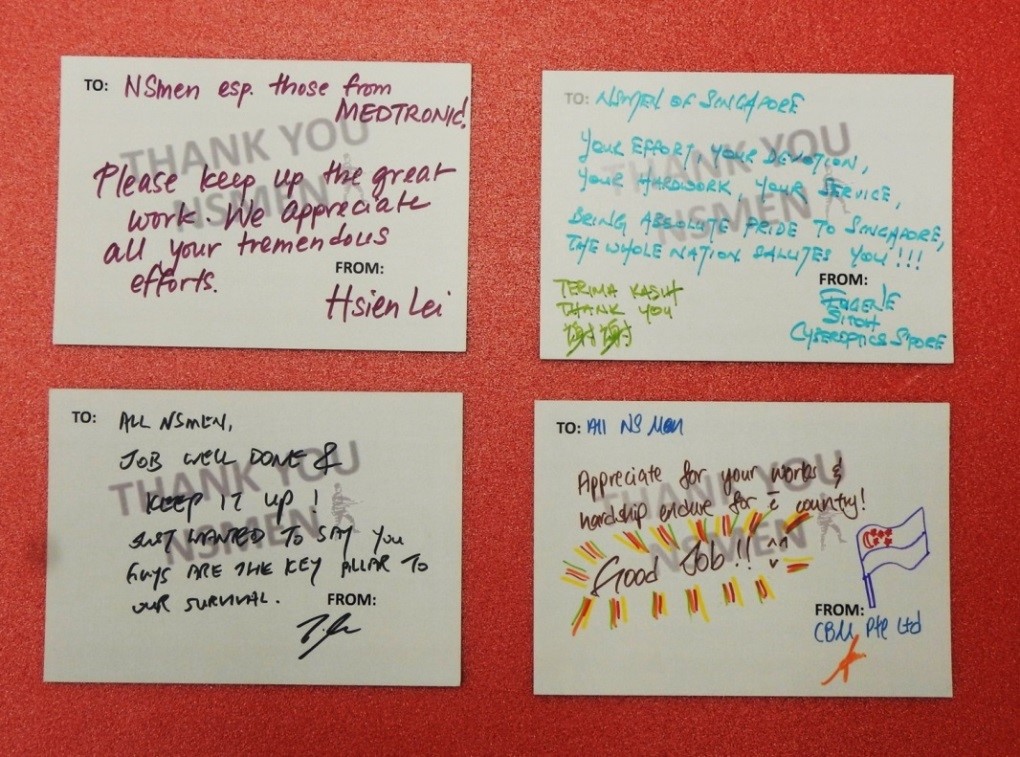 TO: NSmen esp. those from
MEDTRONIC!
THANK YOU
NSMEN
Please keep up the great
work. We appreciate
all your tremendous
efforts.
FROM:
Hsien Lei
TO: NSMEN OF SINGAPORE
THANK YOU
NSMEN
YOUR EFFORT, YOUR DEVOTION,
YOUR HARDWORK, YOUR SERVICE,
BEING ABSOLUTE PRIDE TO SINGAPORE,
THE WHOLE NATION SALUTES YOU!!!
TERIMA KASIH
THANK YOU
謝謝
FROM:
EUGENE
SITOH
CYBEROPTICS S'PORE
TO: ALL NSMEN,
THANK YOU
NSMEN
JOB WELL DONE &
KEEP IT UP!
JUST WANTED TO SAY YOU
GUYS ARE THE KEY PILLAR TO
OUR SURVIVAL.
FROM:
TO: All NS Men
THANK YOU
NSMEN
Appreciate for your works &
hardship endure for country!
Good Job!! ^^
FROM:
CBM Pte Ltd